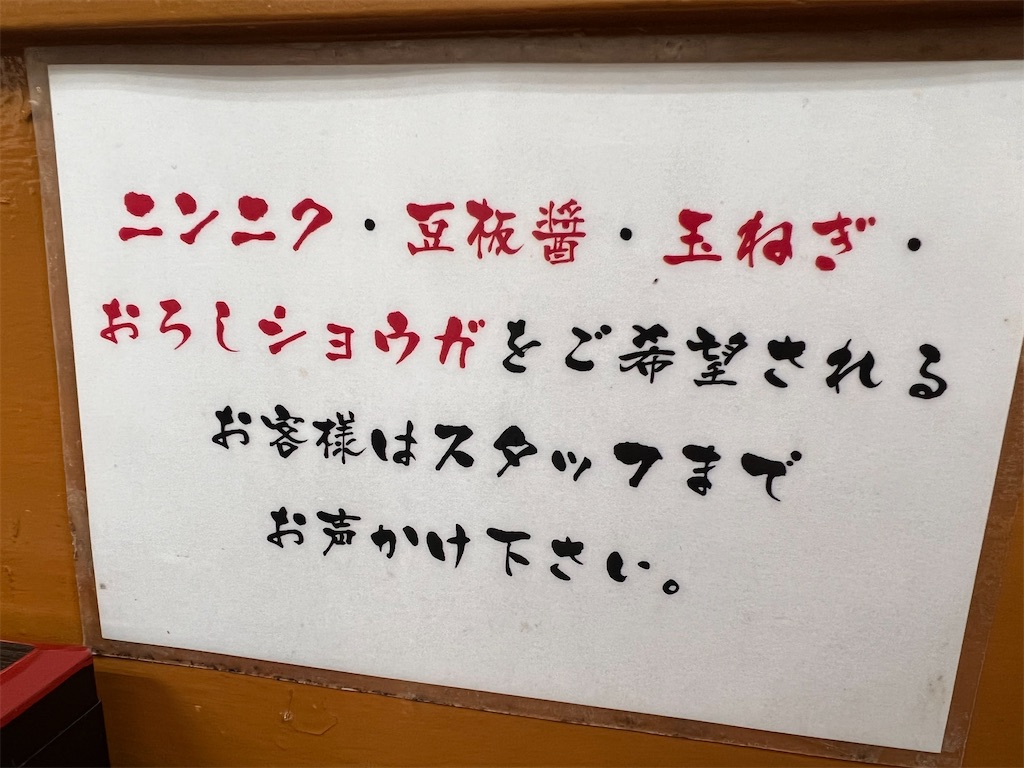 ニンニク・豆板醤・玉ねぎ・
おろしショウガをご希望される
お客様はスタッフまで
お声かけ下さい。